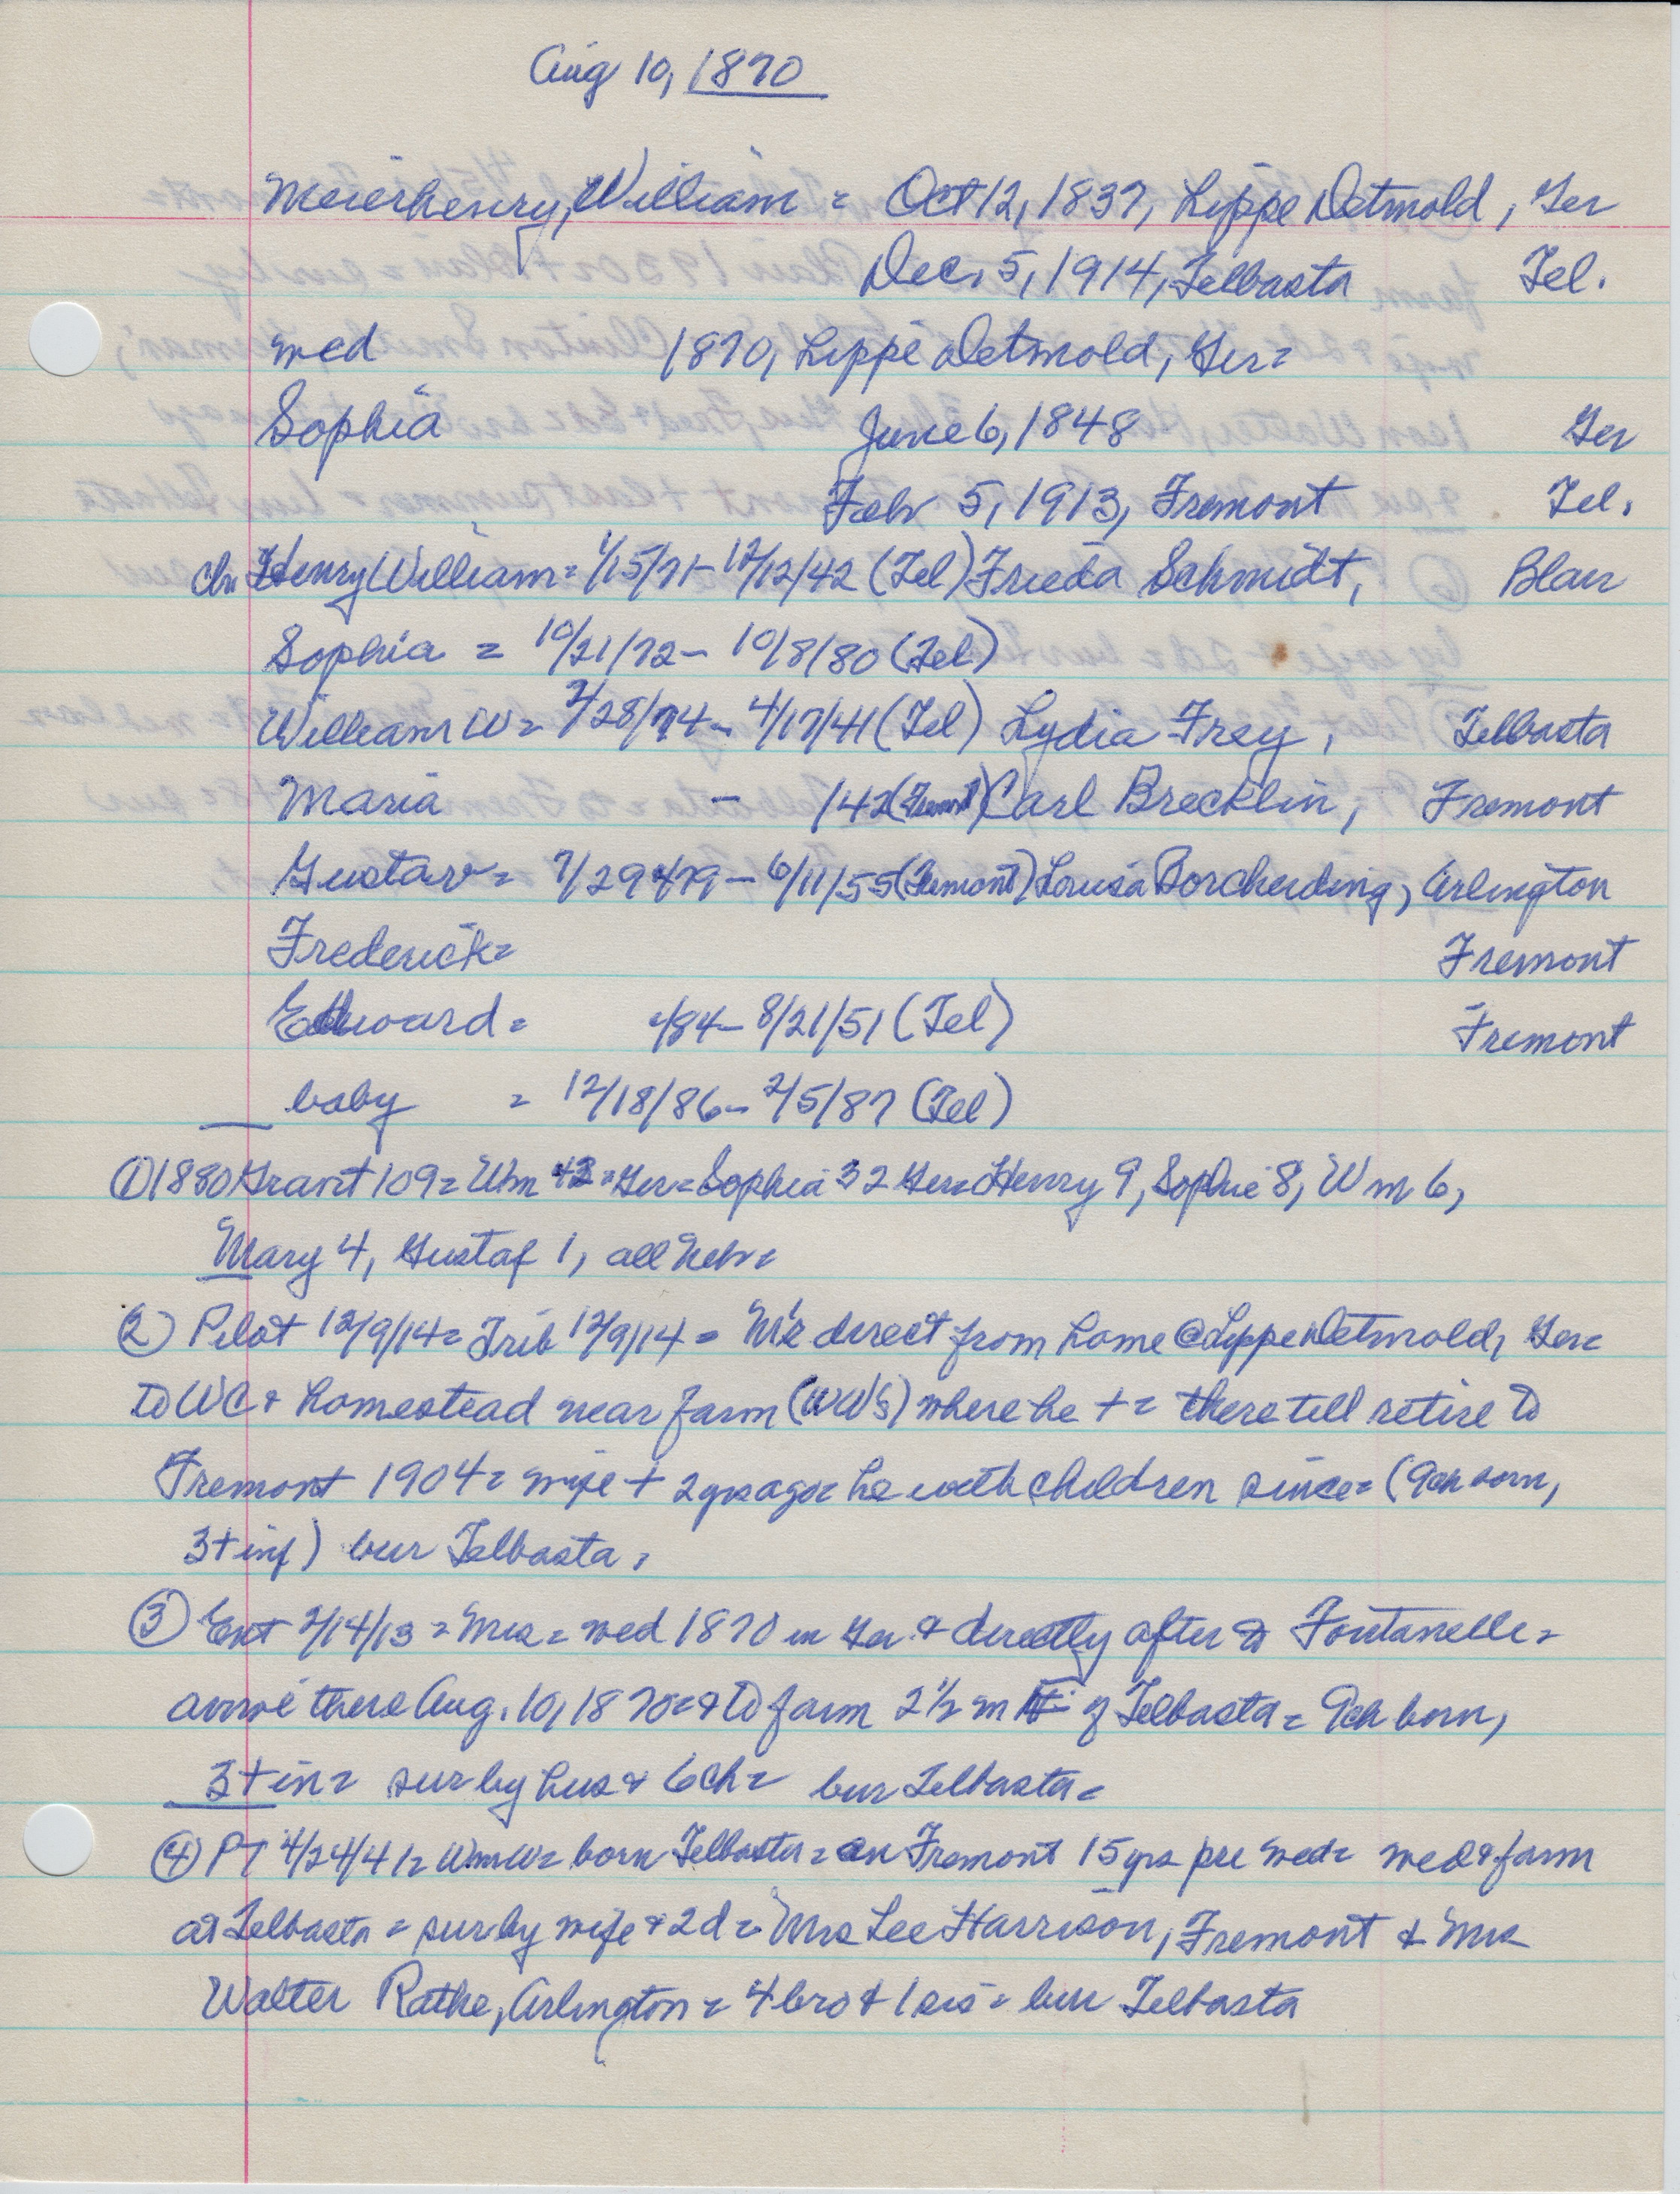 Aug 10, 1870
Meierhenry, William = Oct 12, 1837, Lippe Detmold, Ger
Dec. 5, 1914, Telbasta Tel.
wed 1870, Lippe Detmold, Ger=
Sophia June 6, 1848 Ger
Febr 5, 1913, Fremont Tel.
chn Henry William = 1/15/71 - 12/12/42 (Tel) Frieda Schmidt, Blair
Sophia = 10/21/72 - 10/8/80 (Tel)
William W = 2/28/74 - 4/17/41 (Tel) Lydia Frey, Telbasta
Maria - /42 (Fremont) Carl Brecklin, Fremont
Gustav = 7/29/79 - 6/11/55 (Fremont) Louisa Borcherding, Arlington
Frederick = Fremont
Edward = /84 - 8/21/51 (Tel) Fremont
baby = 12/18/86 - 2/5/87 (Tel)
① 1880 Grant 109 = Wm 42 = Ger = Sophia 32 Ger = Henry 9, Sophie 8, Wm 6,
Mary 4, Gustaf 1, all Nebr =
② Pilot 12/9/14 = Trib 12/9/14 = Mr direct from home @ Lippe Detmold, Ger =
to WC & homestead near farm (WW's) where he + = there till retire to
Fremont 1904 = wife + 2 yrs ago = he with children since = (9 ch born,
3 + inf) bur Telbasta,
③ Ent 2/14/13 = Mrs = wed 1870 in Ger & directly after to Fontanelle =
arrive there Aug. 10, 1870 = & to farm 2 1/2 m of Telbasta = 9 ch born,
3 + in = sur by hus & 6 ch = bur Telbasta =
④ PT 4/24/41 = Wm W = born Telbasta = in Fremont 15 yrs pre wed = wed & farm
at Telbasta = sur by wife & 2 d = Mrs Lee Harrison, Fremont & Mrs
Walter Rathe, Arlington = 4 bro & 1 sis = bur Telbasta